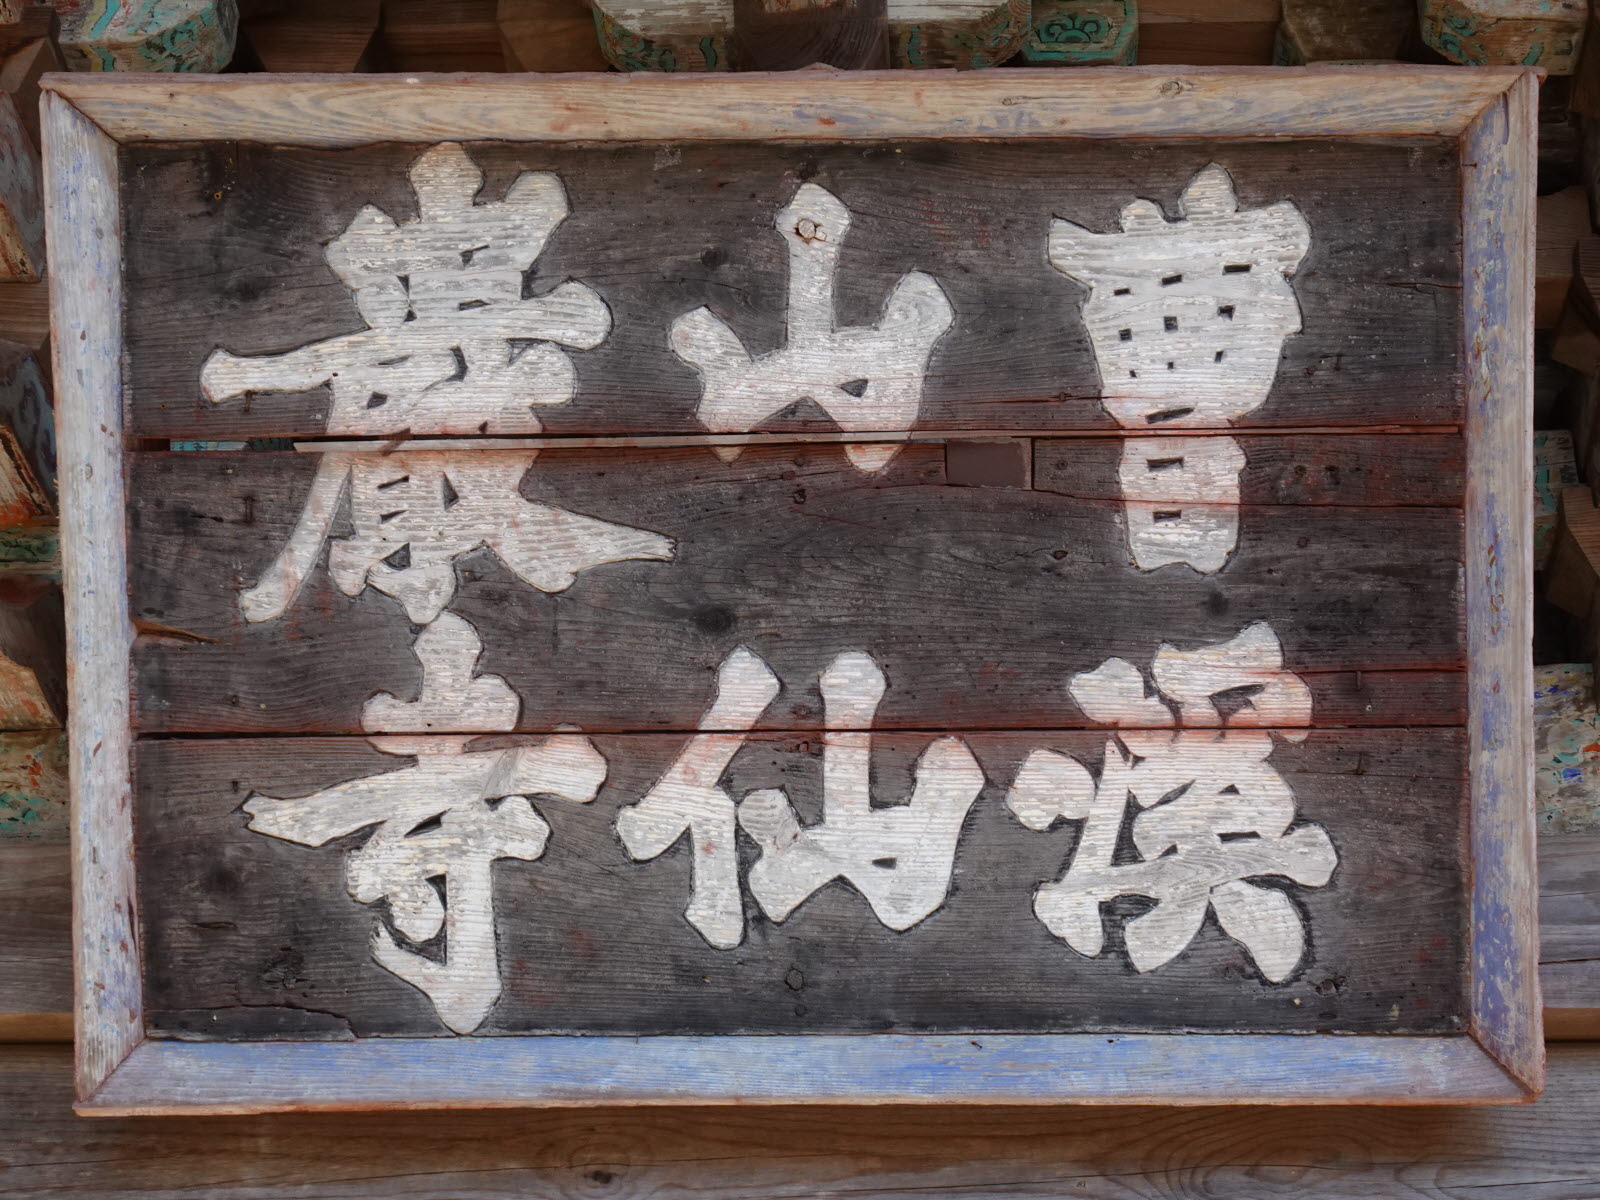 曹溪
山仙
巖寺